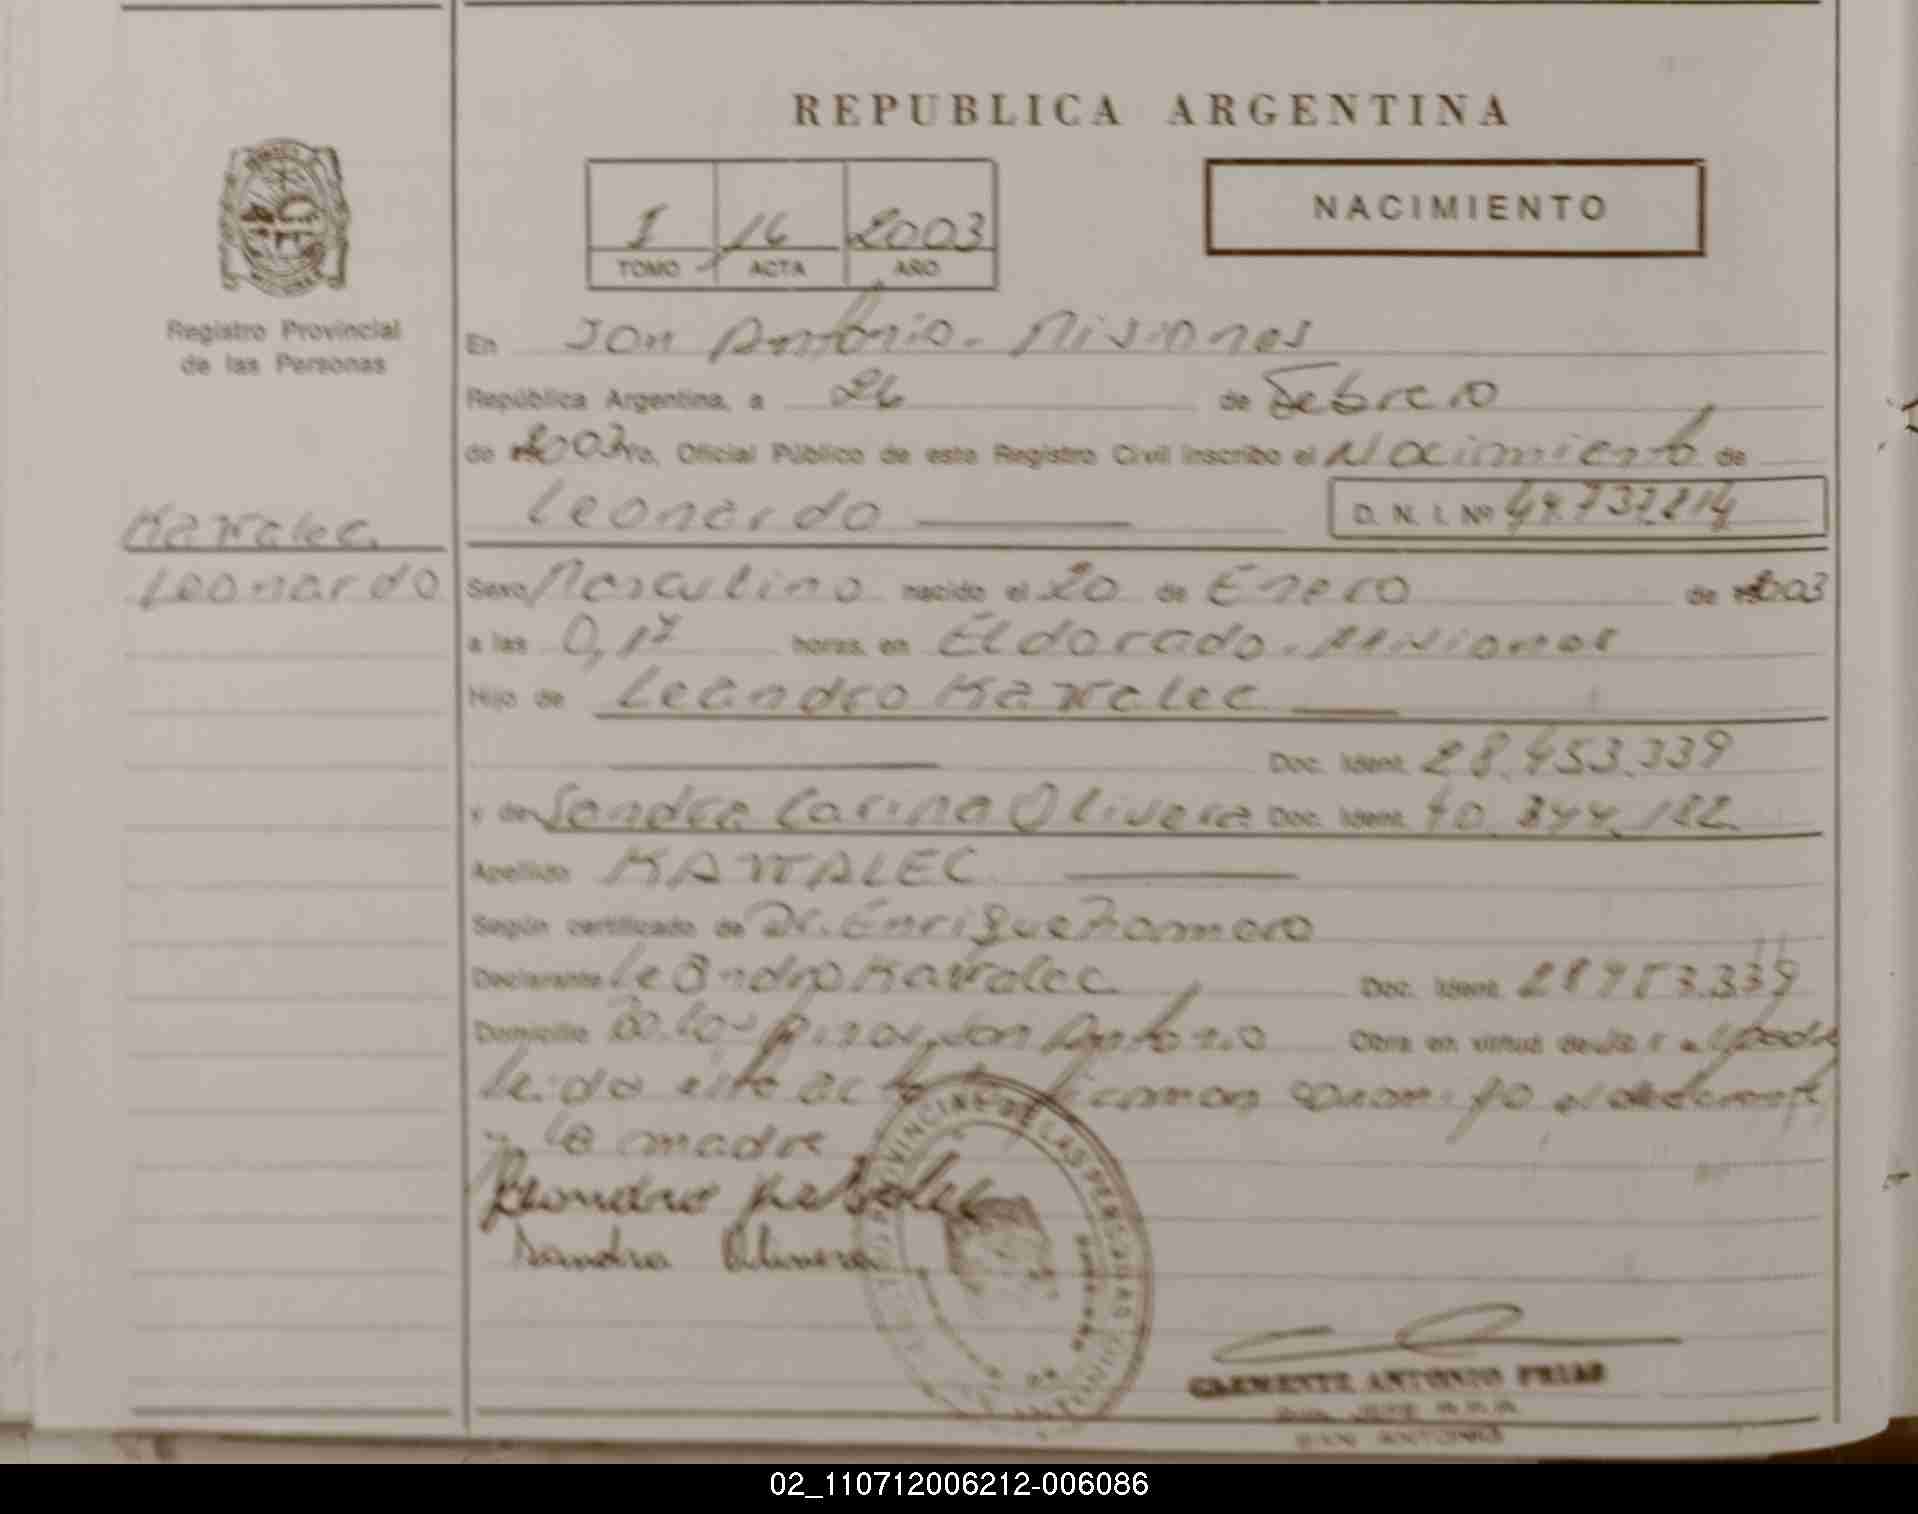 REPUBLICA ARGENTINA
NACIMIENTO
I 16 2003
TOMO ACTA AÑO
Registro Provincial
de las Personas
En San Antonio - Misiones
República Argentina, a 26 de Febrero
de 2003 Yo, Oficial Público de este Registro Civil inscribo el Nacimiento de
Leonardo D. N. I. Nº
Kawalec
Leonardo
Sexo Masculino nacido el 20 de Enero de 2003
a las horas, en Eldorado - Misiones
Hijo de Leandro Kawalec
Doc. Ident. 28.453.339
y de Sandra Carina Olivera Doc. Ident.
Apellido KAWALEC
Según certificado de Dr. Enrique
Declarante Leandro Kawalec Doc. Ident. 28453.339
Domicilio San Antonio Obra en virtud de
leida este acta la firman yo el declarante
y la madre
Leandro Kawalec
Sandra Olivera
PROVINCIAL DE LAS PERSONAS
CLEMENTE ANTONIO FRIAS
SAN ANTONIO
02_110712006212-006086